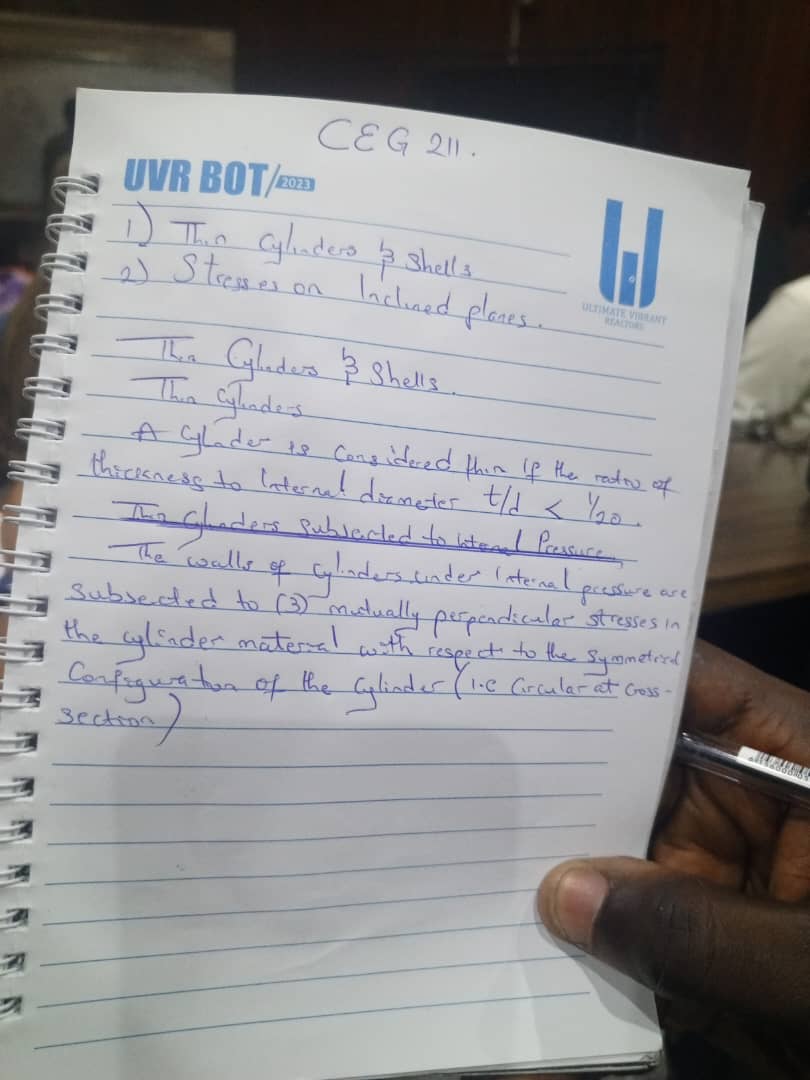 CEG 211.
UVR BOT/2023
1) Thin Cylinders & Shells
2) Stresses on Inclined planes.
ULTIMATE VIBRANT
REALTORS
Thin Cylinders & Shells.
Thin Cylinders
A Cylinder is Considered thin if the ratio of
thickness to Internal diameter t/d < 1/20.
Thin Cylinders Subjected to Internal Pressure,
The walls of Cylinders under Internal pressure are
Subjected to (3) mutually perpendicular stresses in
the cylinder material with respect to the Symmetrical
Configuration of the Cylinder (i.e Circular at Cross-
section)